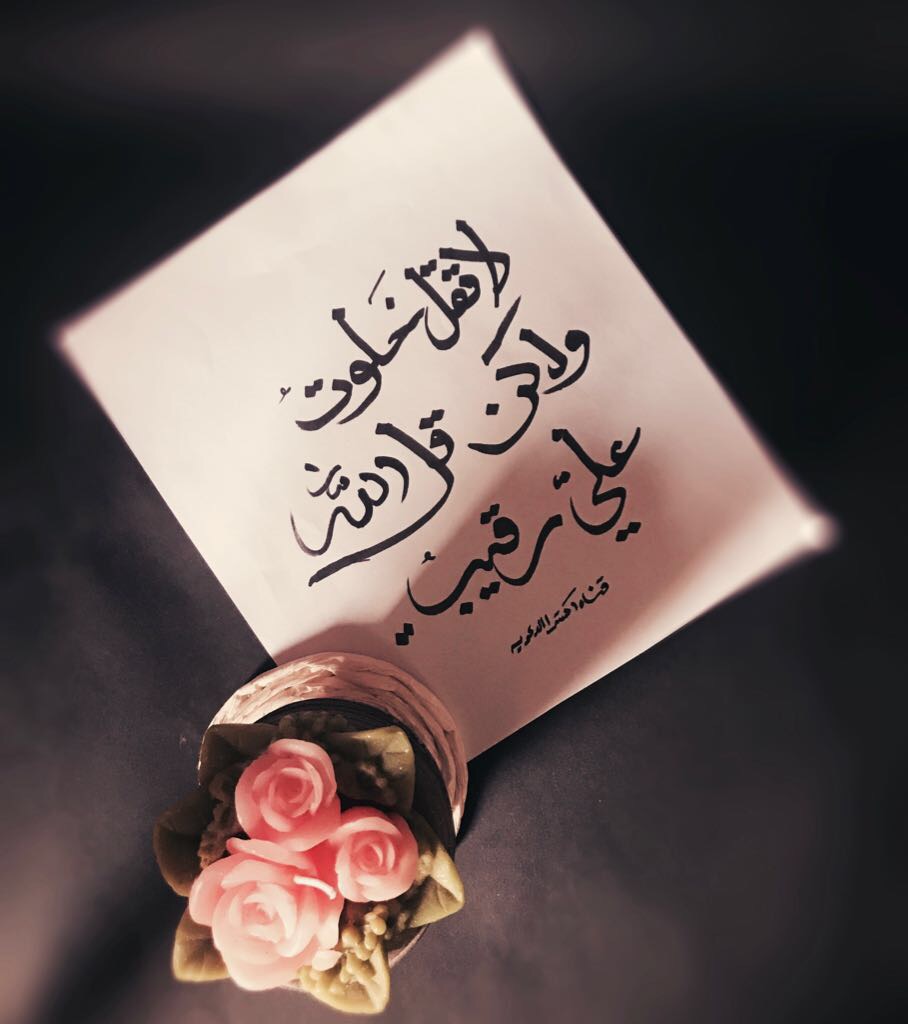 لا تقل خلوتُ
ولكن قل اللّٰه
عليّ رقيبُ
قناة